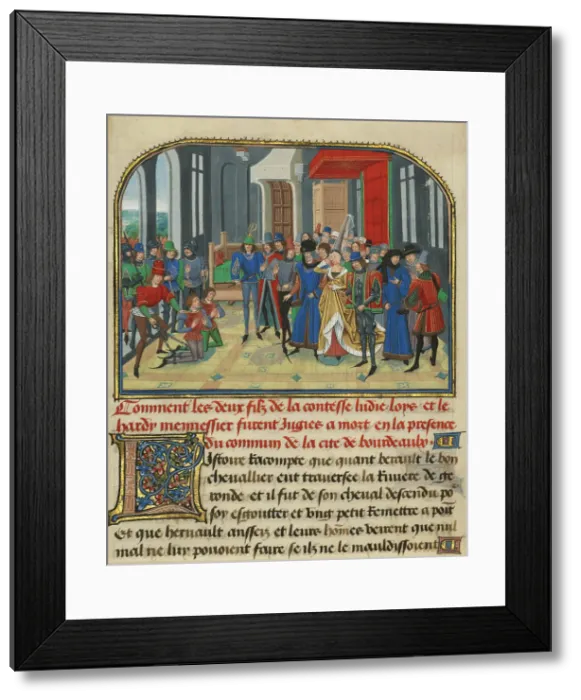 Comment les deux filz de la contesse ludie loys et le
hardy mennessier furent Jugies a mort en la presence
du commun de la cite de bourdeaulx
Istoire Racompte que quant berault le bon
chevallier eut traversee la Riviere de ge
ronde et il fut de son cheval descendu po
soy esgoutter et ung petit Remettre a poit
Et que hernault ansseis et leurs hommes veirent que nul
mal ne luy pouoient faire se ilz ne le mauldissoient